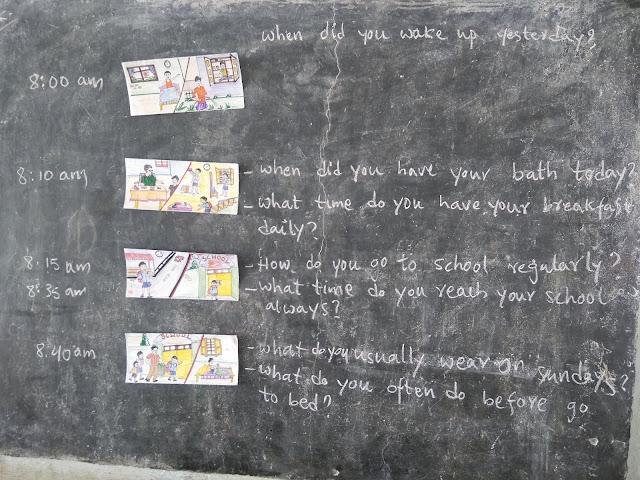 when did you wake up yesterday?
8:00 am
8:10 am
- when did you have your bath today?
- what time do you have your breakfast
daily?
8:15 am
SCHOOL
- How do you go to school regularly?
8:35 am
- what time do you reach your school
always?
SCHOOL
8:40 am
- what do you usually wear on sundays?
- what do you often do before go
to bed?